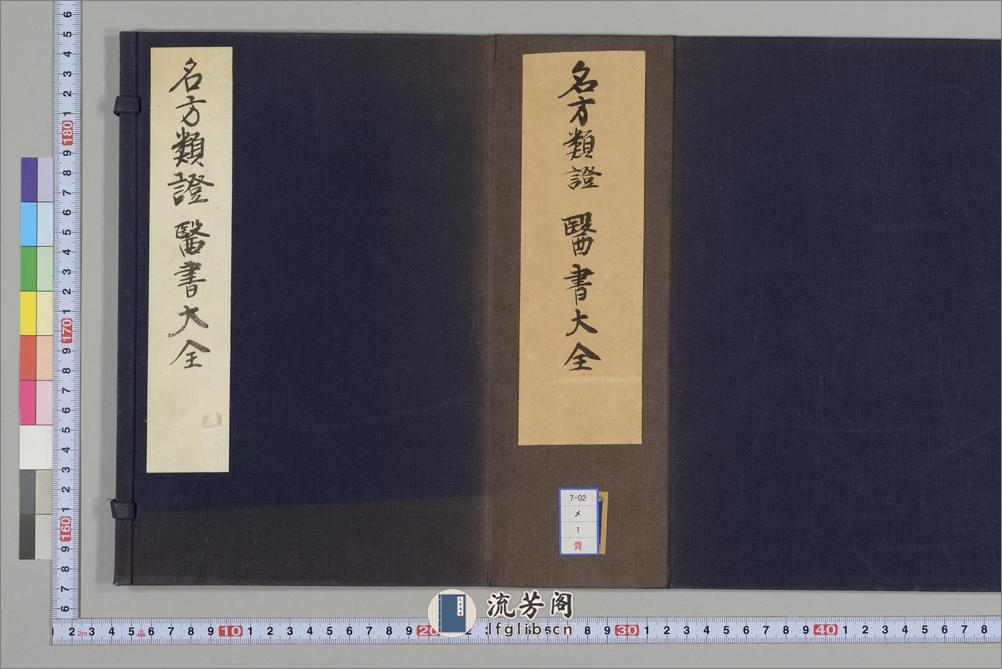 名方類證醫書大全
名方類證 醫書大全
7-02
メ
1
貴
流芳阁
lfglib.cn